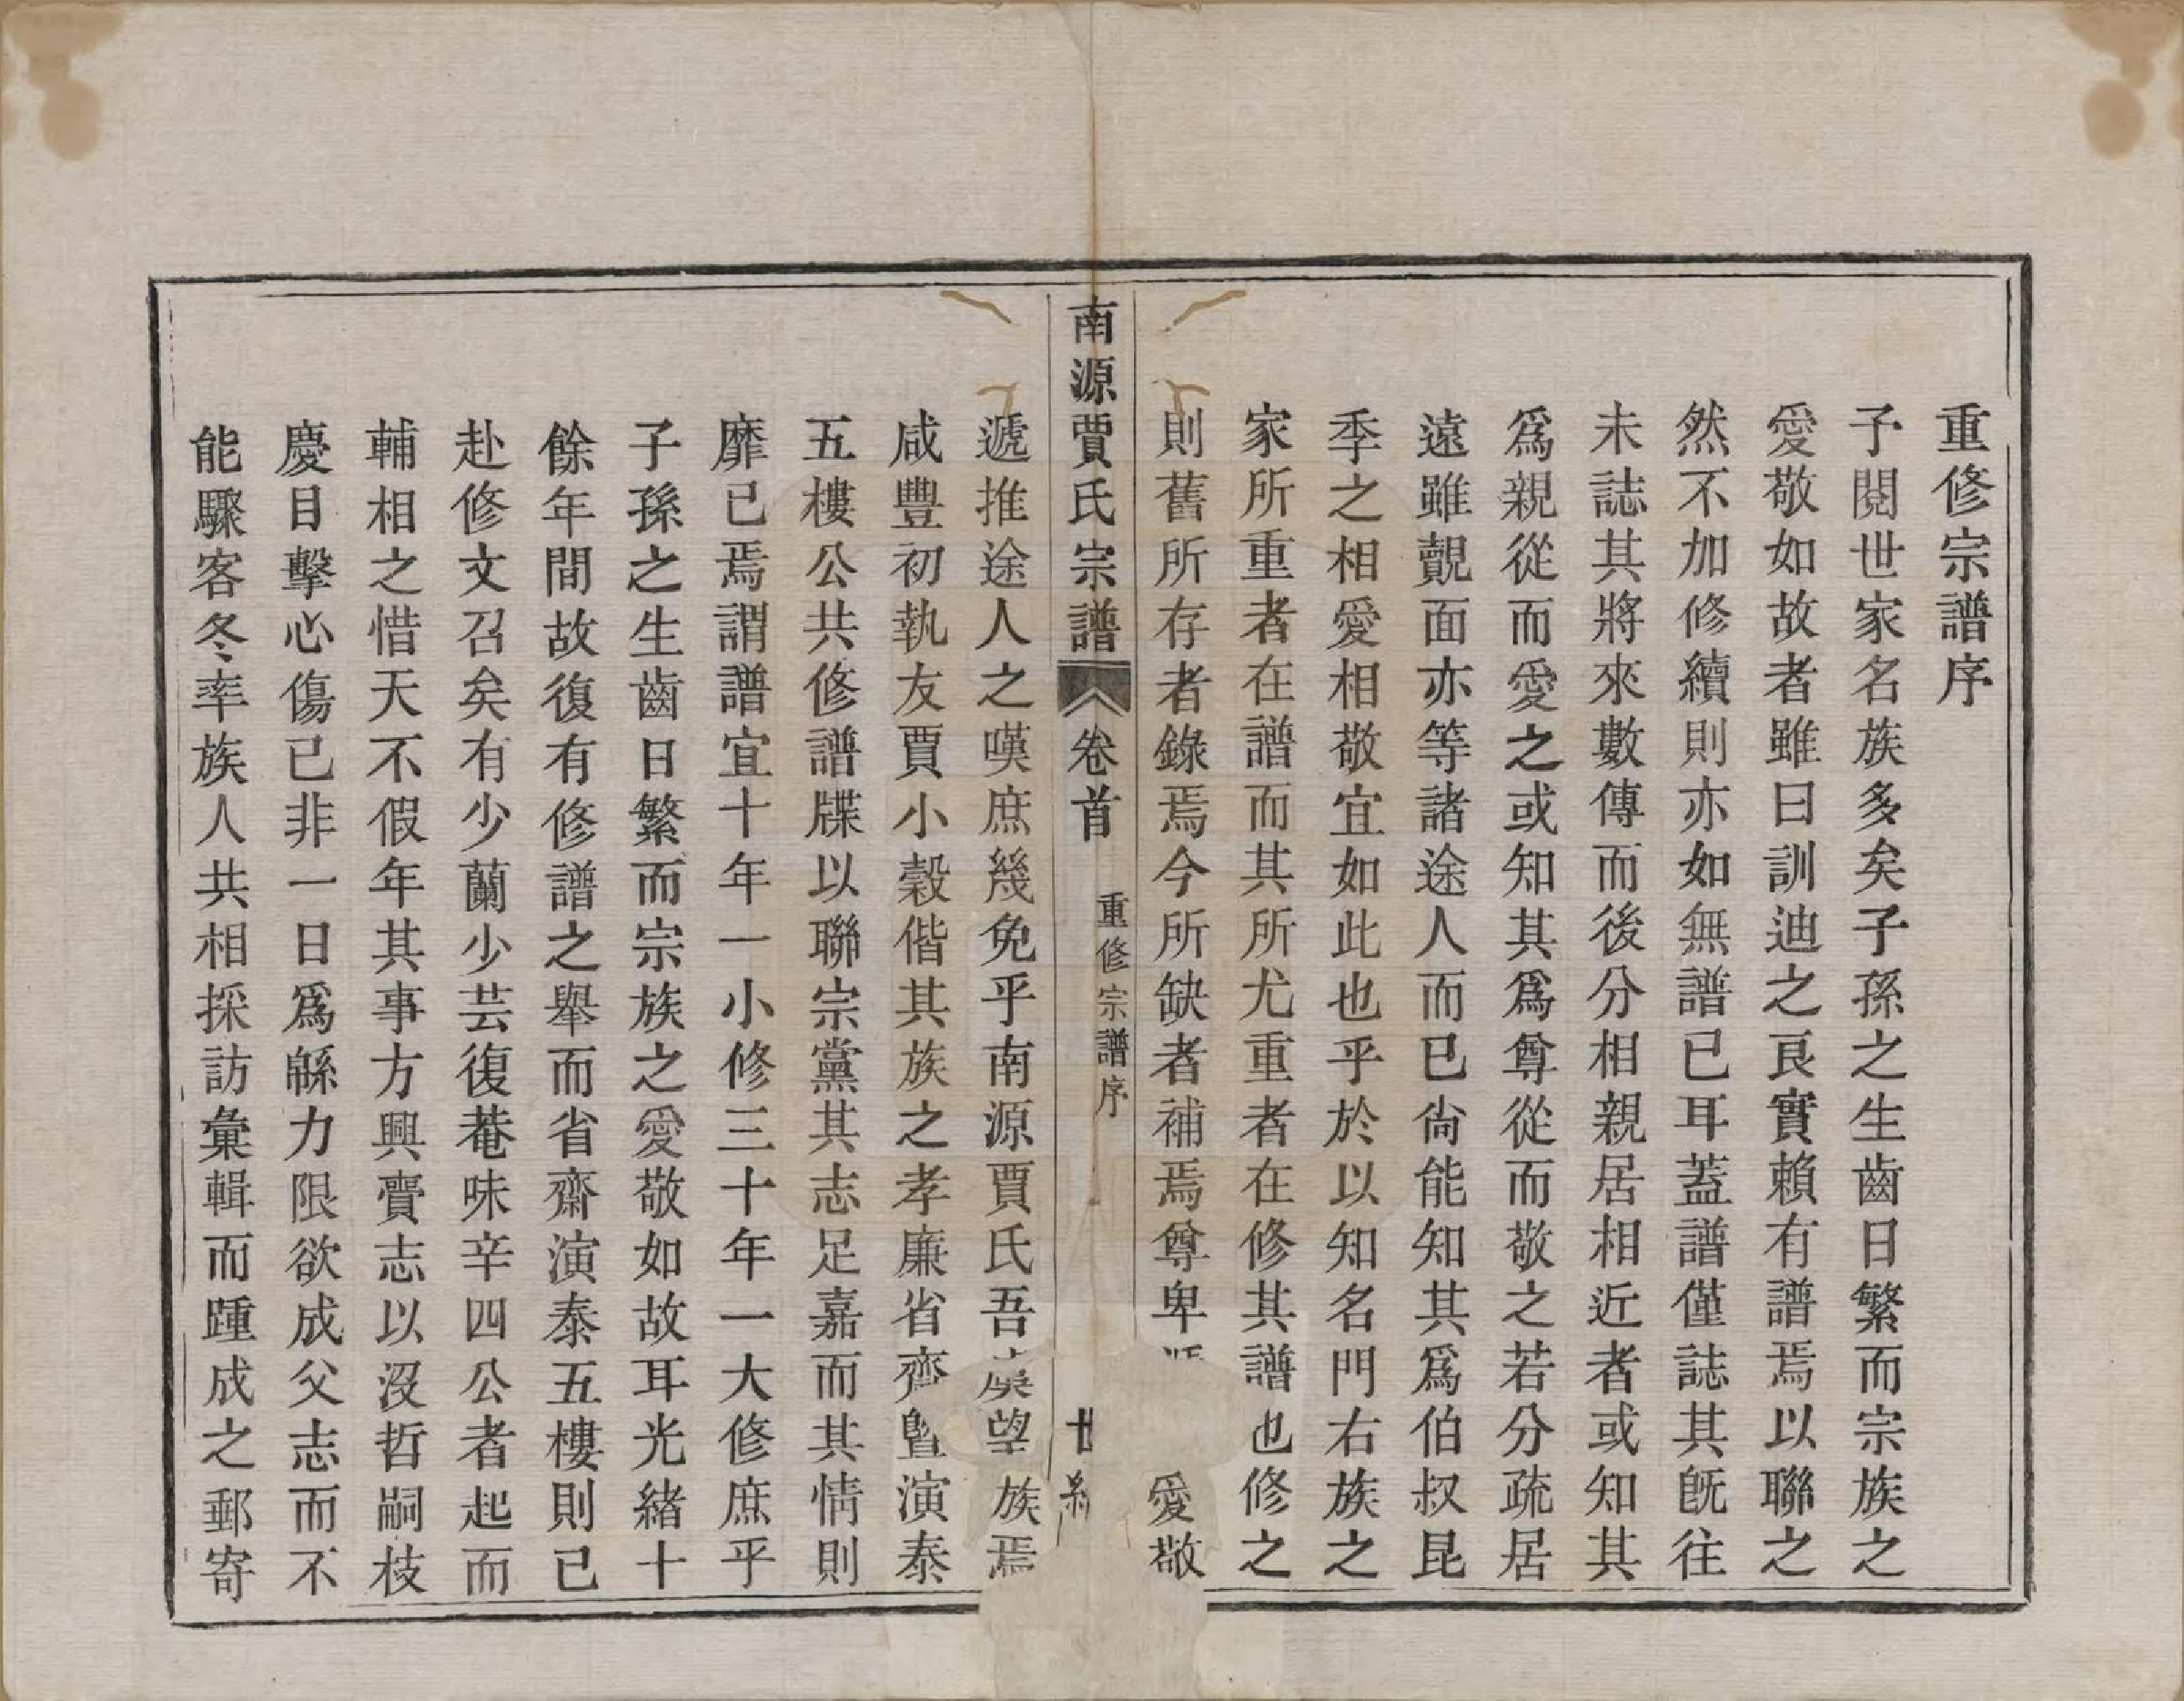 重修宗譜序
予閱世家名族多矣子孫之生齒日繁而宗族之
愛敬如故者雖曰訓迪之良實賴有譜焉以聯之
然不加修續則亦如無譜已耳蓋譜僅誌其旣往
未誌其將來數傳而後分相親居相近者或知其
爲親從而愛之或知其爲尊從而敬之若分疏居
遠雖覿面亦等諸途人而已尙能知其爲伯叔昆
季之相愛相敬宜如此也乎於以知名門右族之
家所重者在譜而其所尤重者在修其譜也修之
則舊所存者錄焉今所缺者補焉尊卑愛敬
南源賈氏宗譜 卷首 重修宗譜序 廿
遞推途人之嘆庶幾免乎南源賈氏吾虞望族焉
咸豐初執友賈小穀偕其族之孝廉省齊曁演泰
五樓公共修譜牒以聯宗黨其志足嘉而其情則
靡已焉謂譜宜十年一小修三十年一大修庶乎
子孫之生齒日繁而宗族之愛敬如故耳光緒十
餘年間故復有修譜之舉而省齋演泰五樓則已
赴修文召矣有少蘭少芸復菴味辛四公者起而
輔相之惜天不假年其事方興賫志以沒哲嗣枝
慶目擊心傷已非一日爲緜力限欲成父志而不
能驟客冬率族人共相採訪彙輯而踵成之郵寄